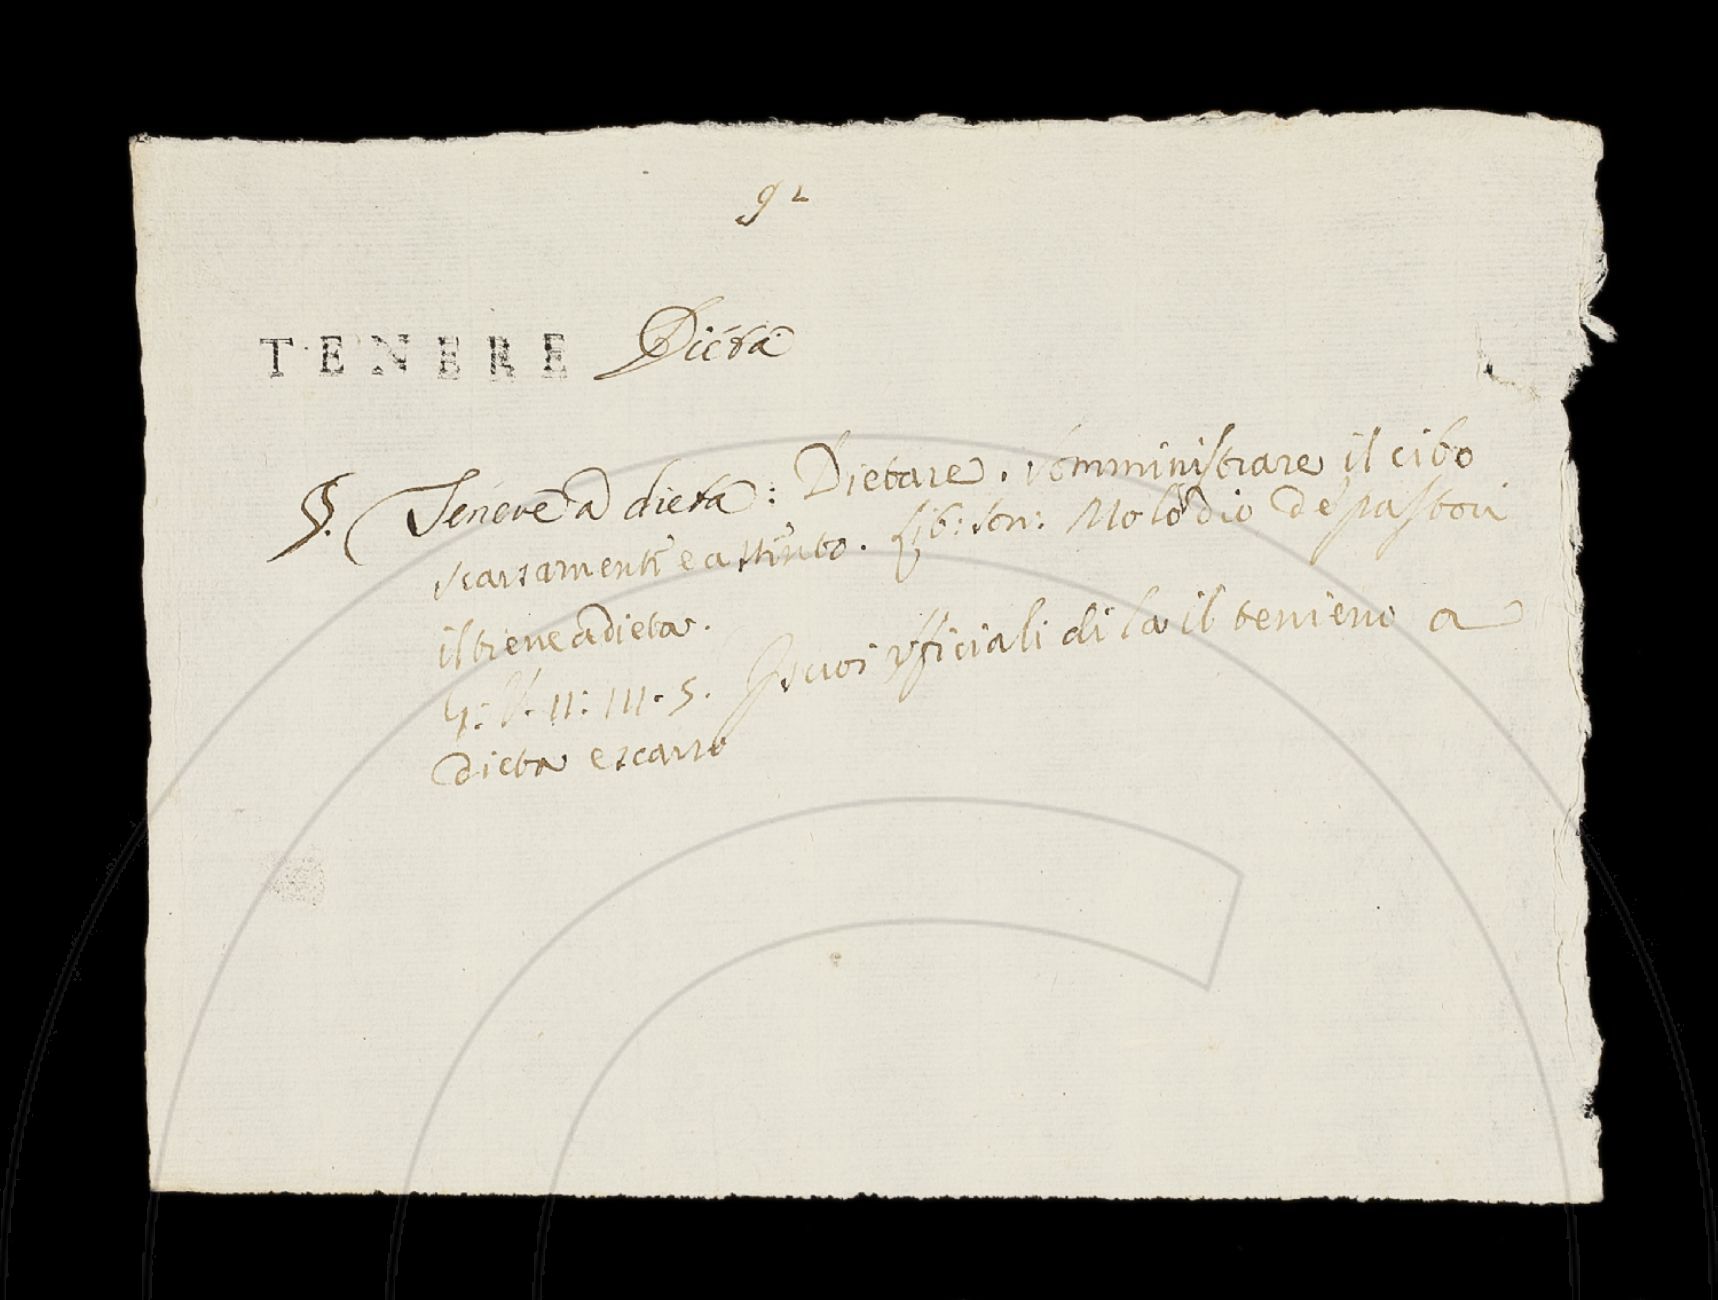 92
TENERE Dieta
§. Tenere a dieta: Dietare. Somministrare il cibo
scarsamente e a stento. lib: son: Mo lo Dio de pastori
il tiene a dieta.
G: V. II: III. 5. I suoi ufficiali di la il tenieno a
dieta e scarso